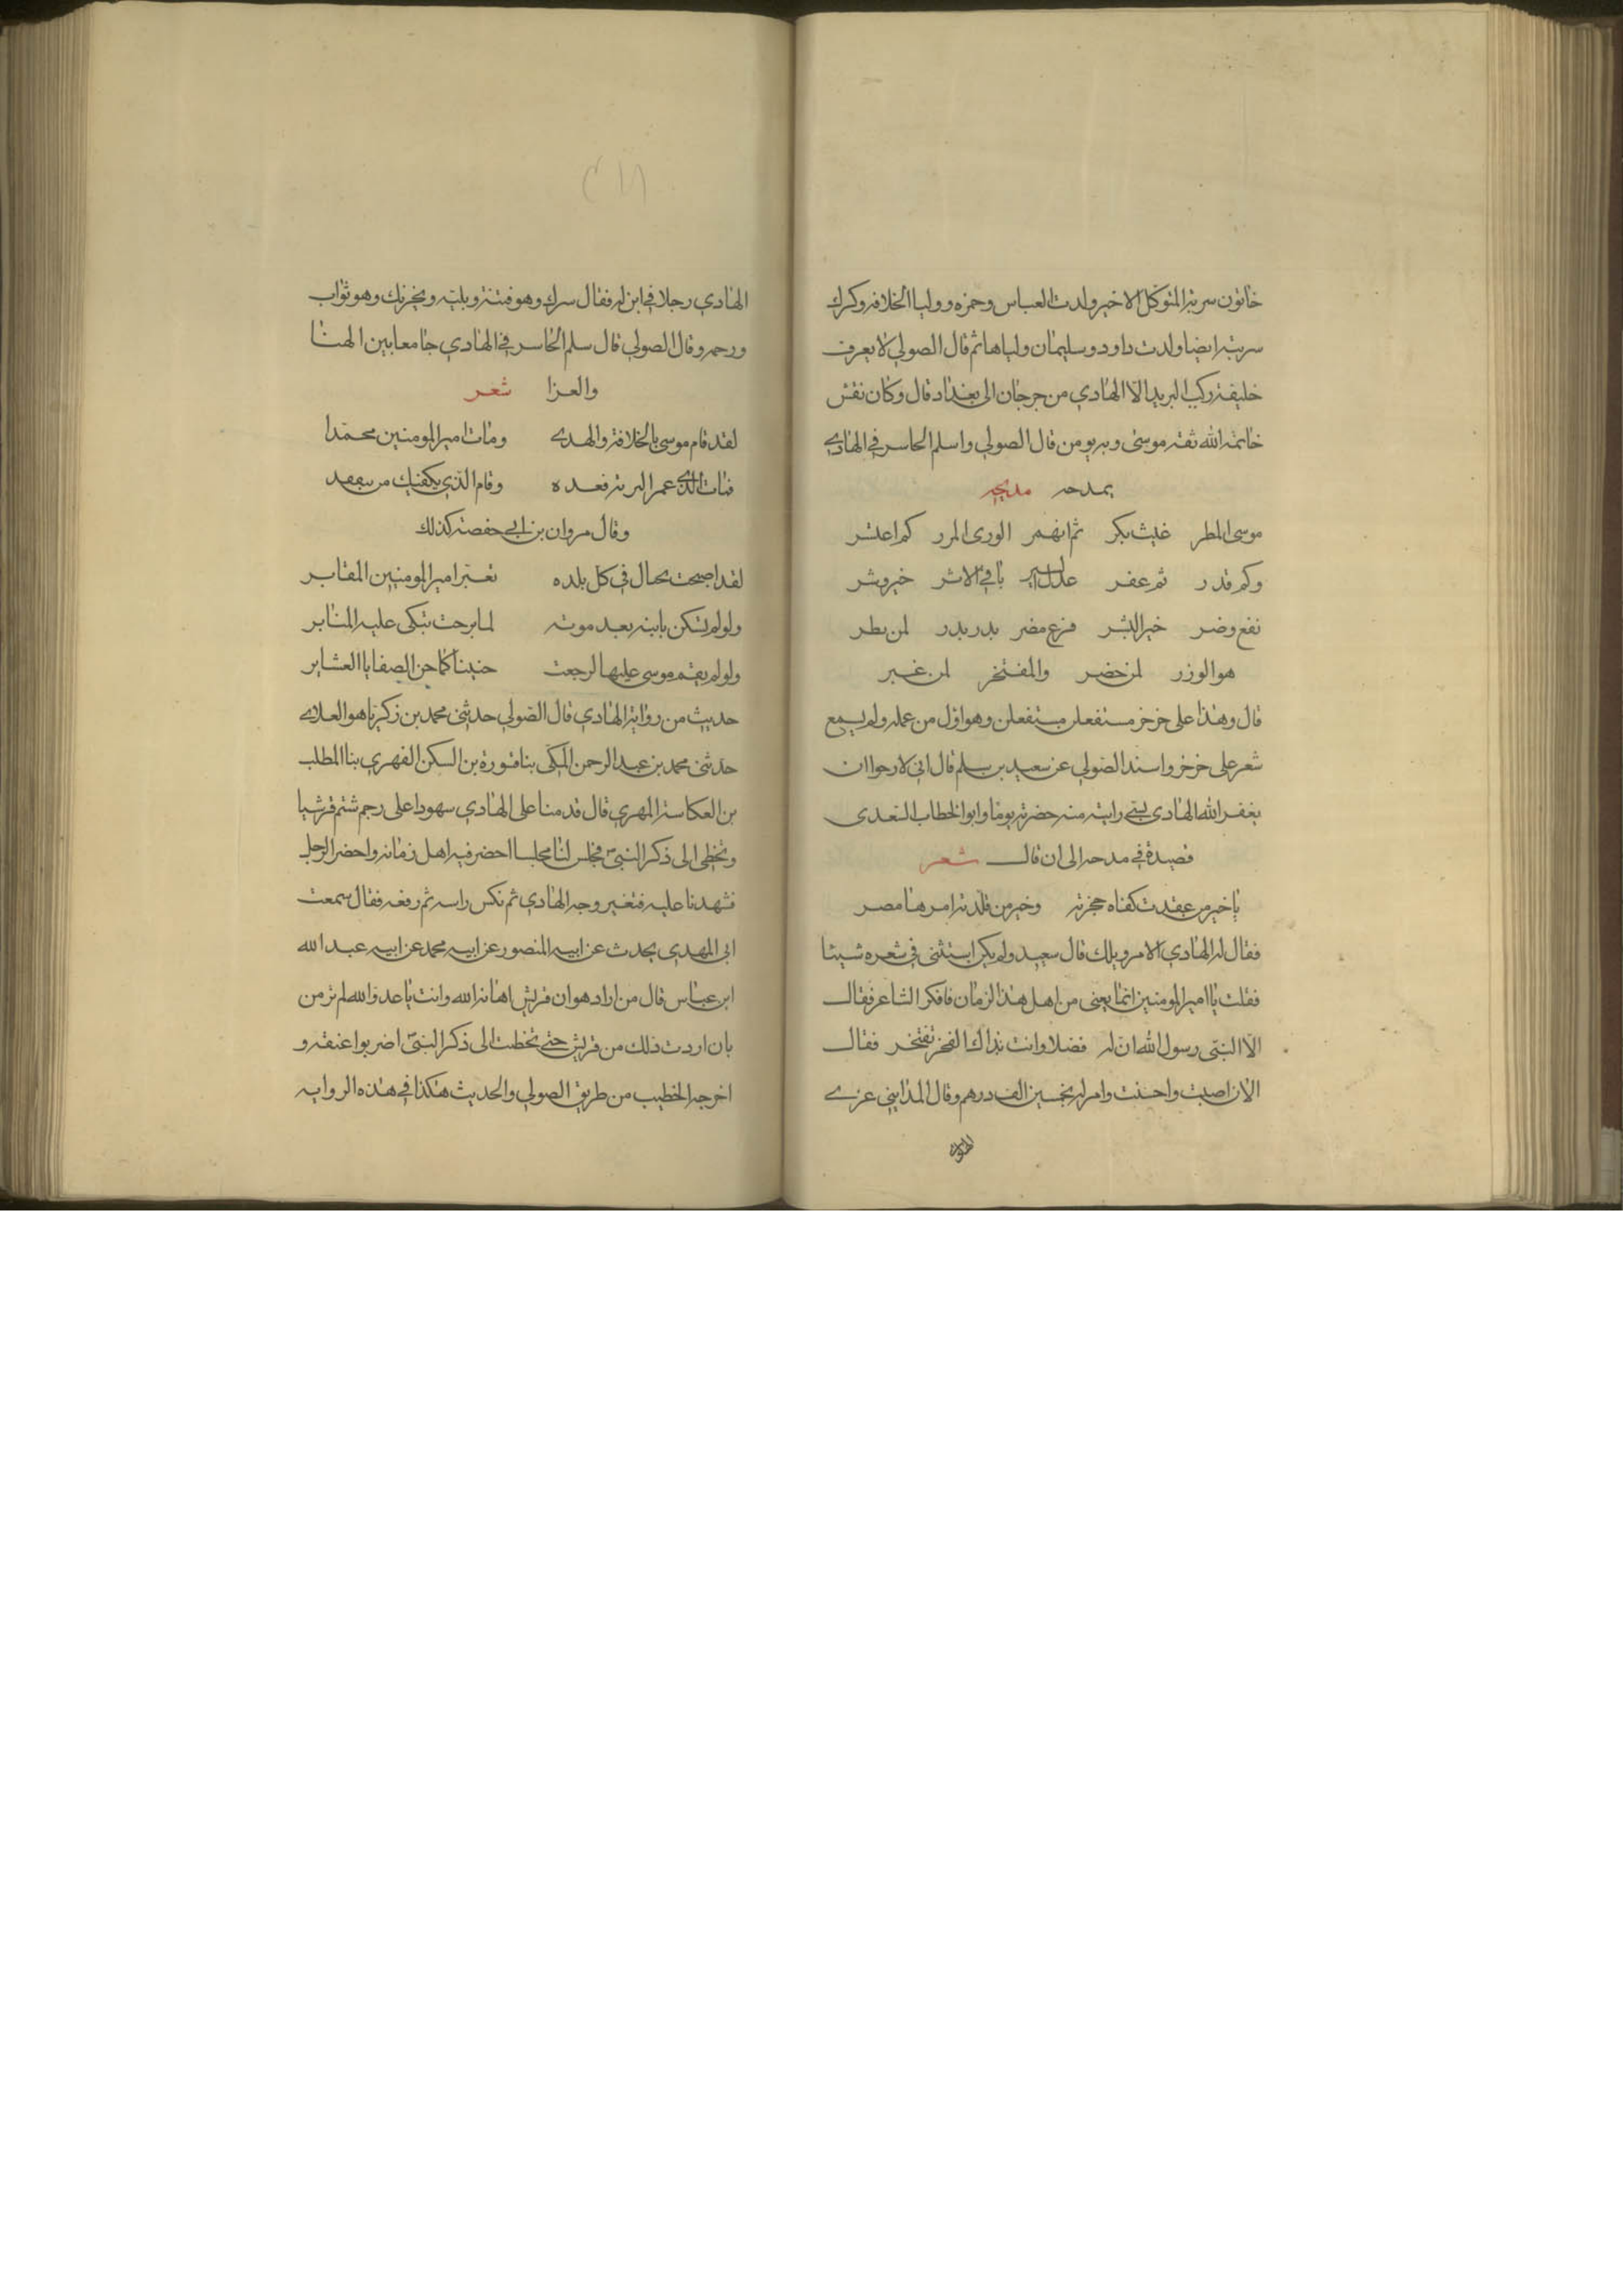 خاتون سرية المتوكل الاخير ولدت العباس وحمزه ووليا الخلافه وكرك
سريته ايضا ولدت داود وسليمان ولياها ثم قال الصولي لا يعرف
خليفة ركب البريد الا الهادي من جرجان الى بغداد قال وكان نقش
خاتمه الله ثقه موسى وبه يومن قال الصولي واسلم الخاسر في الهادي
يمدحه مديحه
موسى المطر غيث بكر ثم انهمر الورى المرر كم اعتسر
وكم قدر ثم عفر عدل السير باقي الاثر خير وشر
نفع وضر خير البشر فرع مضر بدر بدر لمن نظر
هو الوزر لمن حضر والمفتخر لمن غبر
قال وهذا على خرخر مستفعلن مستفعلن وهو اول من عمله ولم يسمع
شعر على خرخر واسند الصولي عن سعيد بن سلم قال اني لارجوا ان
يغفر الله الهادي بشي رايته منه حضرته يوما وابو الخطاب السعدى
قصيدة في مدحه الى ان قال شعر
يا خير من عقدت كفاه حجزته وخير من قلدته امرها مصر
فقال له الهادي الامر ويلك قال سعيد ولم يكن استثنى في شعره شيئا
فقلت يا امير المومنين انما يعنى من اهل هذا الزمان فافكر الشاعر فقال
الا النبي رسول الله ان له فضلا وانت بذاك الفخر تفتخر فقال
الان اصبت واحسنت وامر له بخمسين الف درهم وقال المدايني عزى
الهادي رجلا في ابن له فقال سرك وهو فتنة وبلية ويحزنك وهو ثواب
ورحمه وقال الصولي قال سلم الخاسر في الهادي جامعا بين الهنا
والعزا شعر
لقد قام موسى بالخلافة والهدى ومات امير المومنين محمدا
فمات الذي عمر البرية فعده وقام الذي يكفيك من يفقد
وقال مروان بن ابي حفصة كذلك
لقد اصبحت تحال في كل بلده تعتبر امير المومنين المقابر
ولو لم تسكن بابنه بعد موته لما برحت تبكى عليه المنابر
ولو لم يقم موسى عليها لرجعت حنينا كما حن الصفايا العشاير
حديث من رواية الهادي قال الصولي حدثني محمد بن زكريا هو العلابي
حدثني محمد بن عبد الرحمن المكى بنا قسورة بن السكن الفهري بنا المطلب
بن العكاسة المهري قال قدمنا على الهادي سهودا على رجم شتم قرشيا
وتخطى الى ذكر النبي فجلس لنا مجلسا احضر فيه اهل زمانه واحضر الرجل
فشهدنا عليه فتغير وجه الهادي ثم نكس راسه ثم رفعه فقال سمعت
ابي المهدي يحدث عن ابيه المنصور عن ابيه محمد عن ابيه عبد الله
ابن عباس قال من اراد هوان قريش اهانه الله وانت يا عدو الله لم ترمن
بان اردت ذلك من قريش حتى تخطت الى ذكر النبي اضربوا عنقه و
اخرجه الخطيب من طريق الصولي والحديث هكذا في هذه الروايه